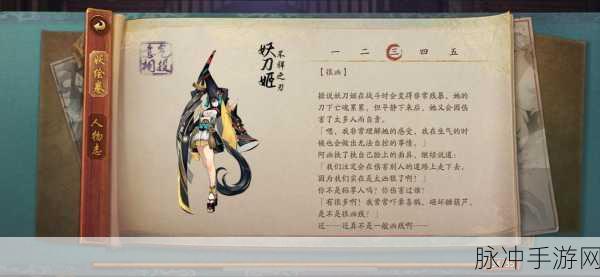 妖绘卷
人物志
妖刀姬
不祥之刃
一 二 三 四 五
【恨血】
据说妖刀姬在战斗时会变得非常残暴，她的
刀下亡魂累累，但平静下来后，她又会因伤
害了太多人而自责。
「嗯，我非常理解她的感受，我在生气的时
候也会做出无法自控的事情。」
阿血扶了扶自己脸上的面具，继续说道：
「我们注定会在伤害别人的道路上走下去，
因为我们实在是太血腥了啊！」
你不是稻草人吗？你伤害过谁！
「有很多啊！我常常吓乖喜鹊、砸坏糖葫芦，
是不是很血残！」
这……这真不是一般血残啊……
脉冲手游网